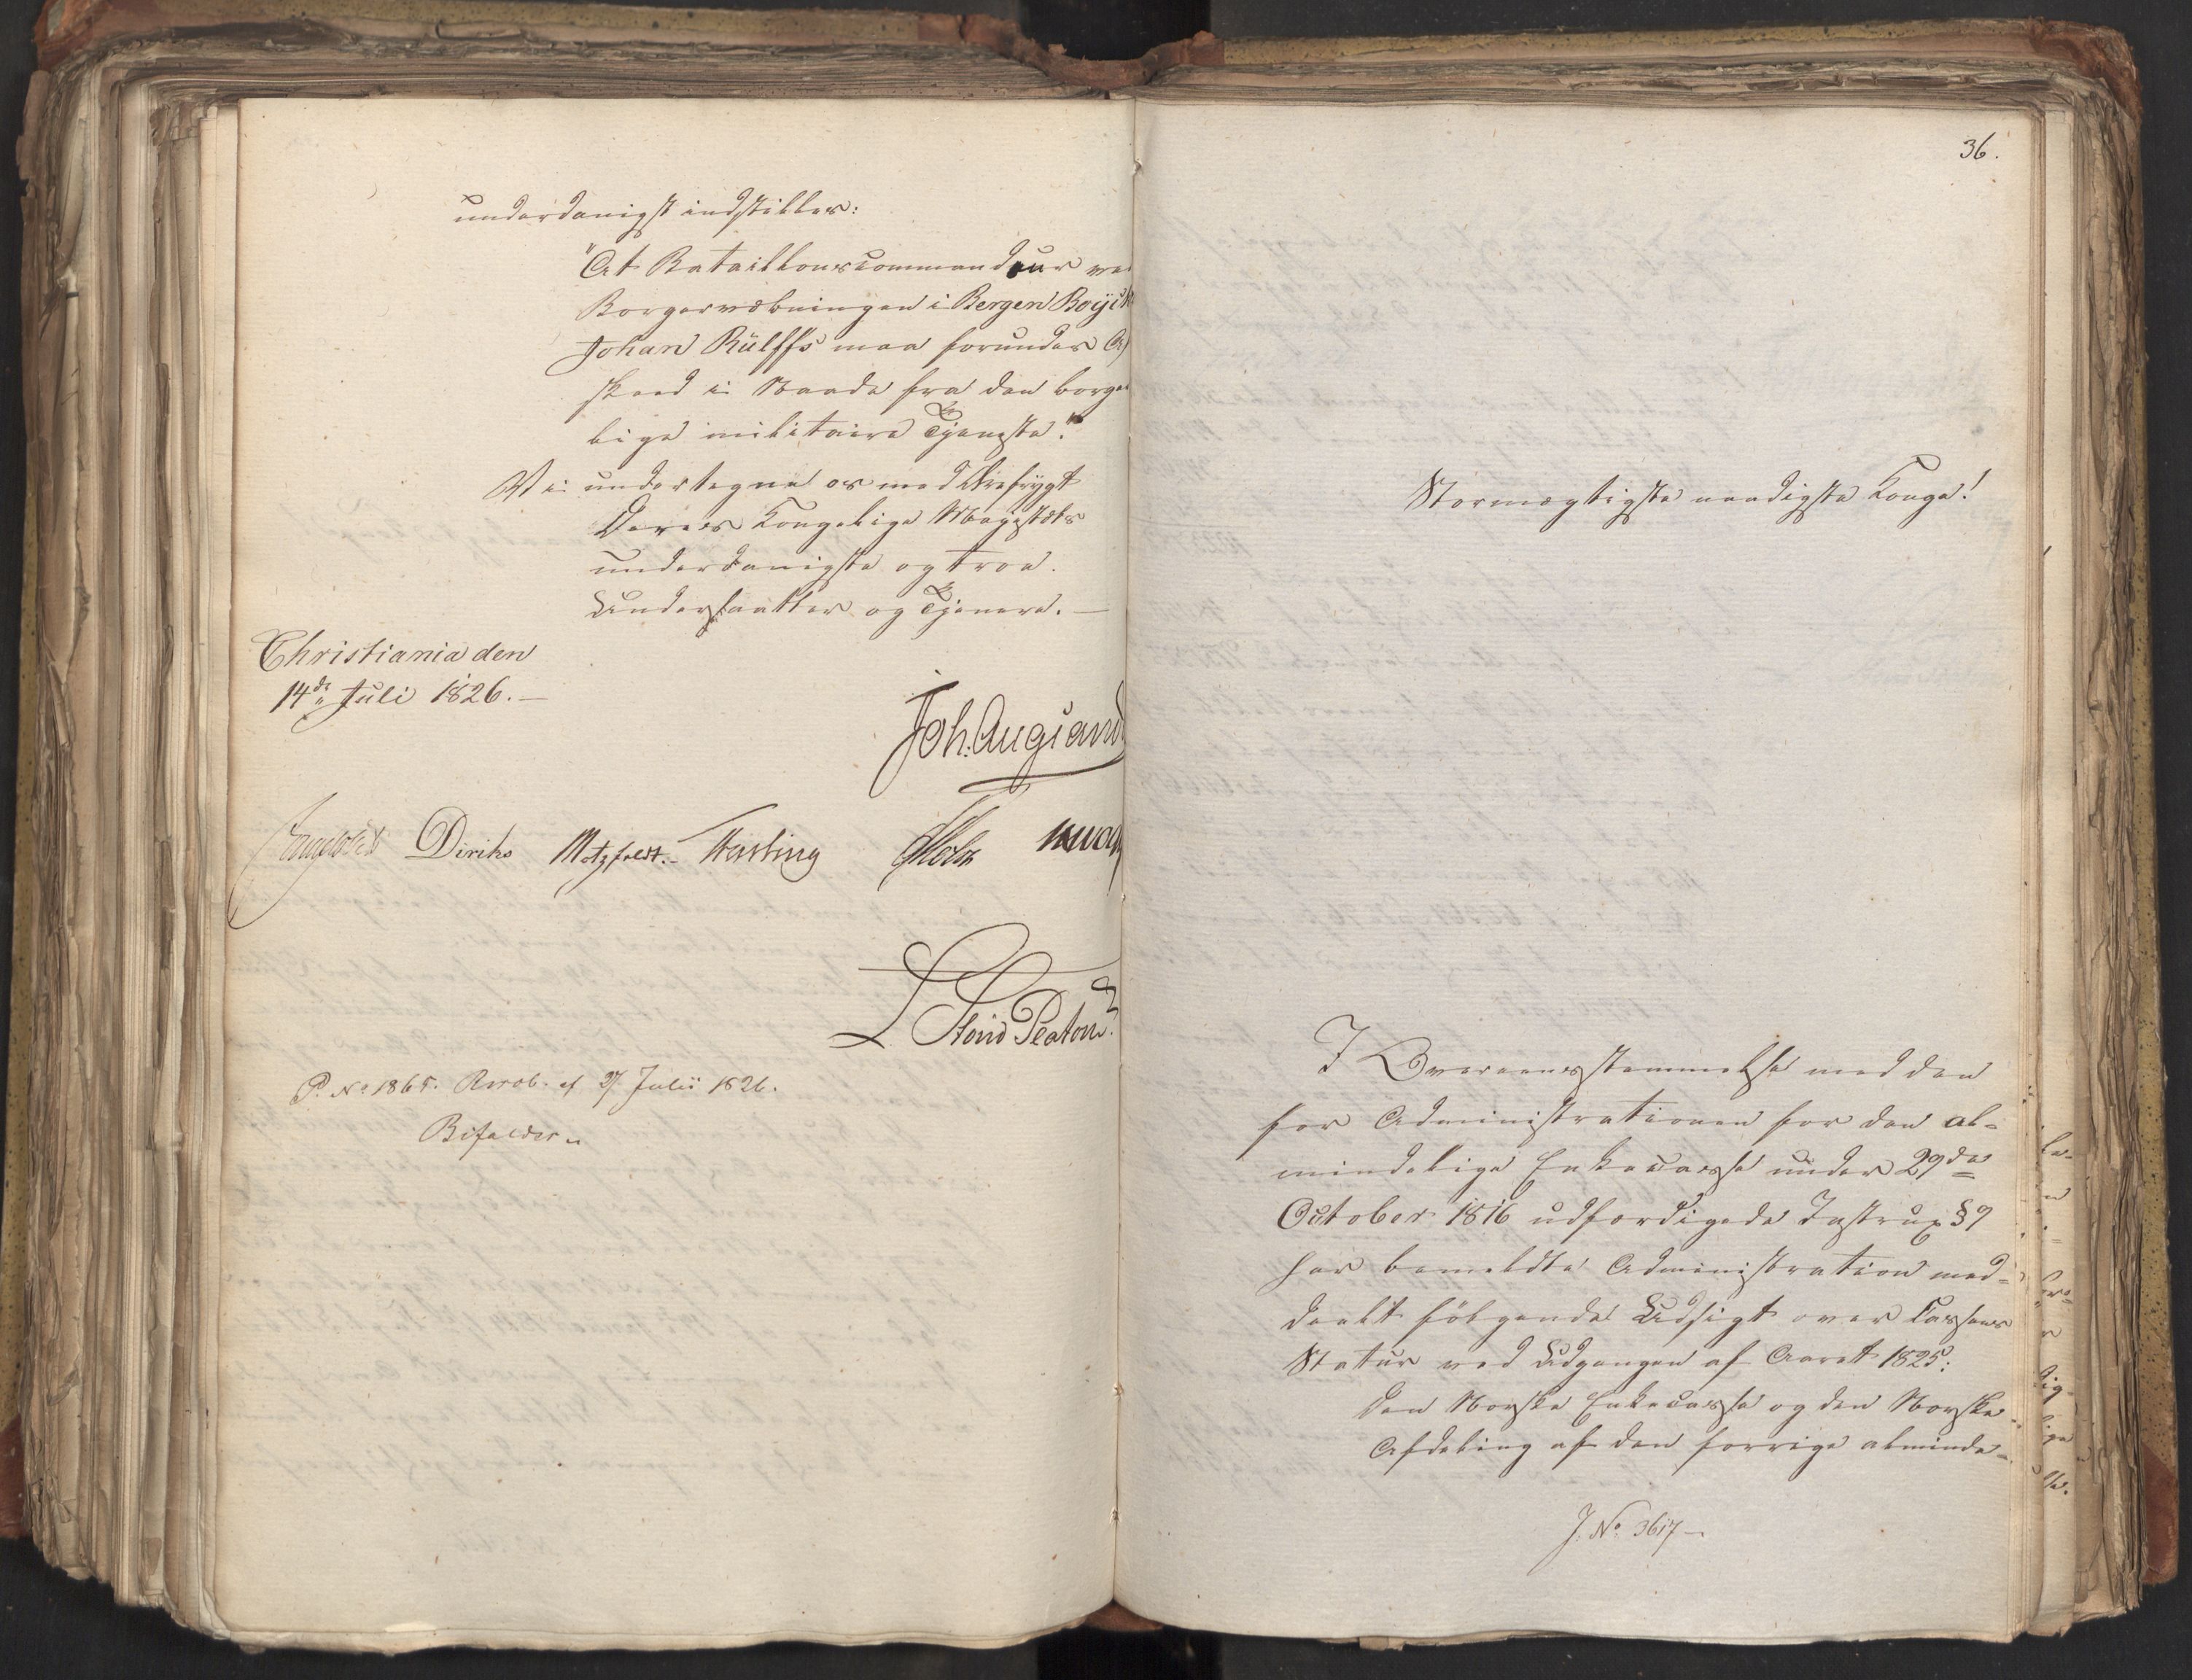 underdanigst indstilles:
"At Bataillonscommandeur ve
Borgervæbningen i Bergen Boyi
Johan Rülffs maa forundes Af
skeed i Naade fra den borger
lige militaire Tjeneste."
Vi undertegne os med Ærefrygt
Deres Kongelige Majestæts
underdanigste og troe
Undersaatter og Tjenere. —
Christiania den
14de Juli 1826. —
Joh: Aug: Sand
Diriks Motzfeldt. Fasting Holst
P. No 1865. Resol. af 27 Julii 1826.
Bifaldes
36.
Stormægtigste naadigste Konge!
I Overeensstemmelse med den
for Administrationen for den al-
mindelige Enkecasse under 29de
October 1816 udfærdigede Instrux § 9
har bemeldte Administration med-
deelt følgende Udsigt over Cassens
Status ved Udgangen af Aaret 1825:
Den Norske Enkecasse og den Norske
Afdeling af den forrige alminde-
J. No. 3617 —